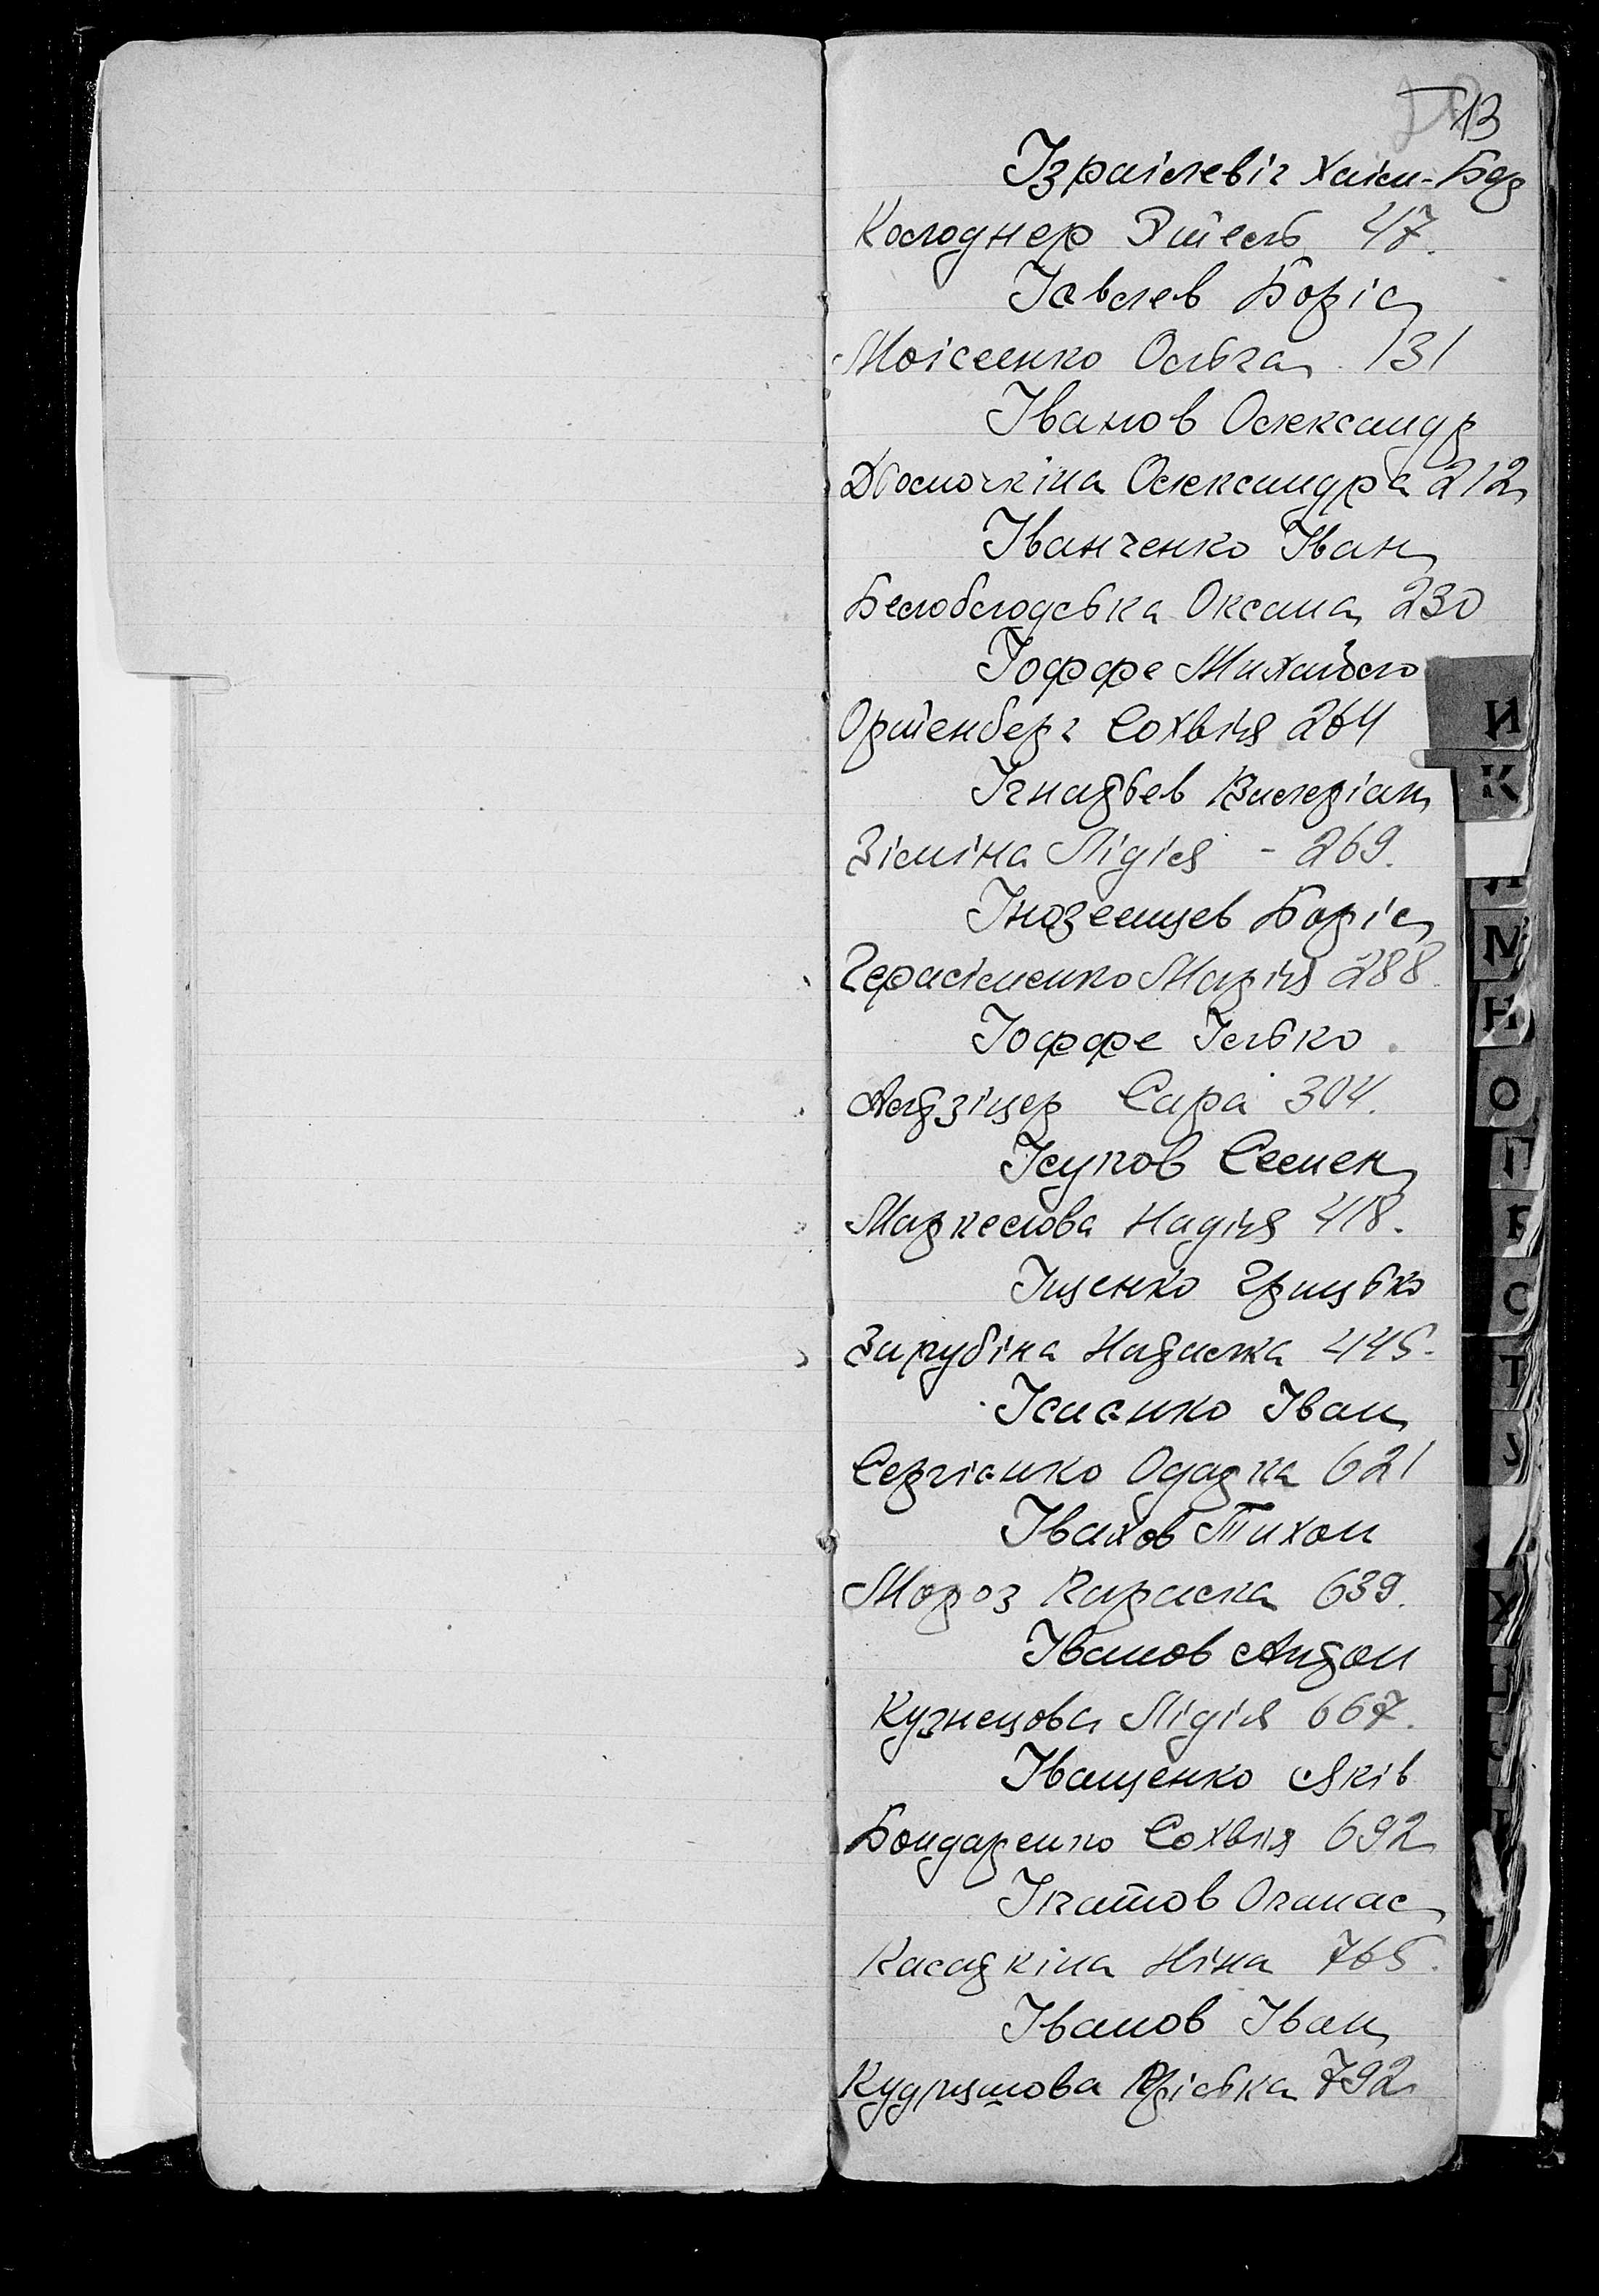 13
Ізраілевіг Хаім-Бер
Колоднер Этель 47.
Іевлев Боріс
Моісеенко Ольга 131
Іванов Олександр
Олександра 212
Іванченко Іван
Белоблодська Оксана 230
Іоффе Михайло
Ортенберг Сохвія 264
Ігнатьев Валеріан
Зіміна Лідія - 269.
Іноземцев Боріс
Герасіменко Марія 288.
Іоффе Ілько
Сара 304.
Ісупов Семен
Маркелова Надія 418.
Іщенко Грицько
Зарубіна Наталка 445.
Ісаенко Іван
Сергіенко Одарка 621
Іванов Тихон
Мороз Параска 639.
Іванов Антон
Кузнецова Лідія 667.
Іващенко Яків
Бондаренко Сохвія 692
Ігнатов Опанас
Касаткіна Ніна 765.
Іванов Іван
Кудряшова 792
И
К
Л
М
Н
О
П
Р
С
Т
У
Х